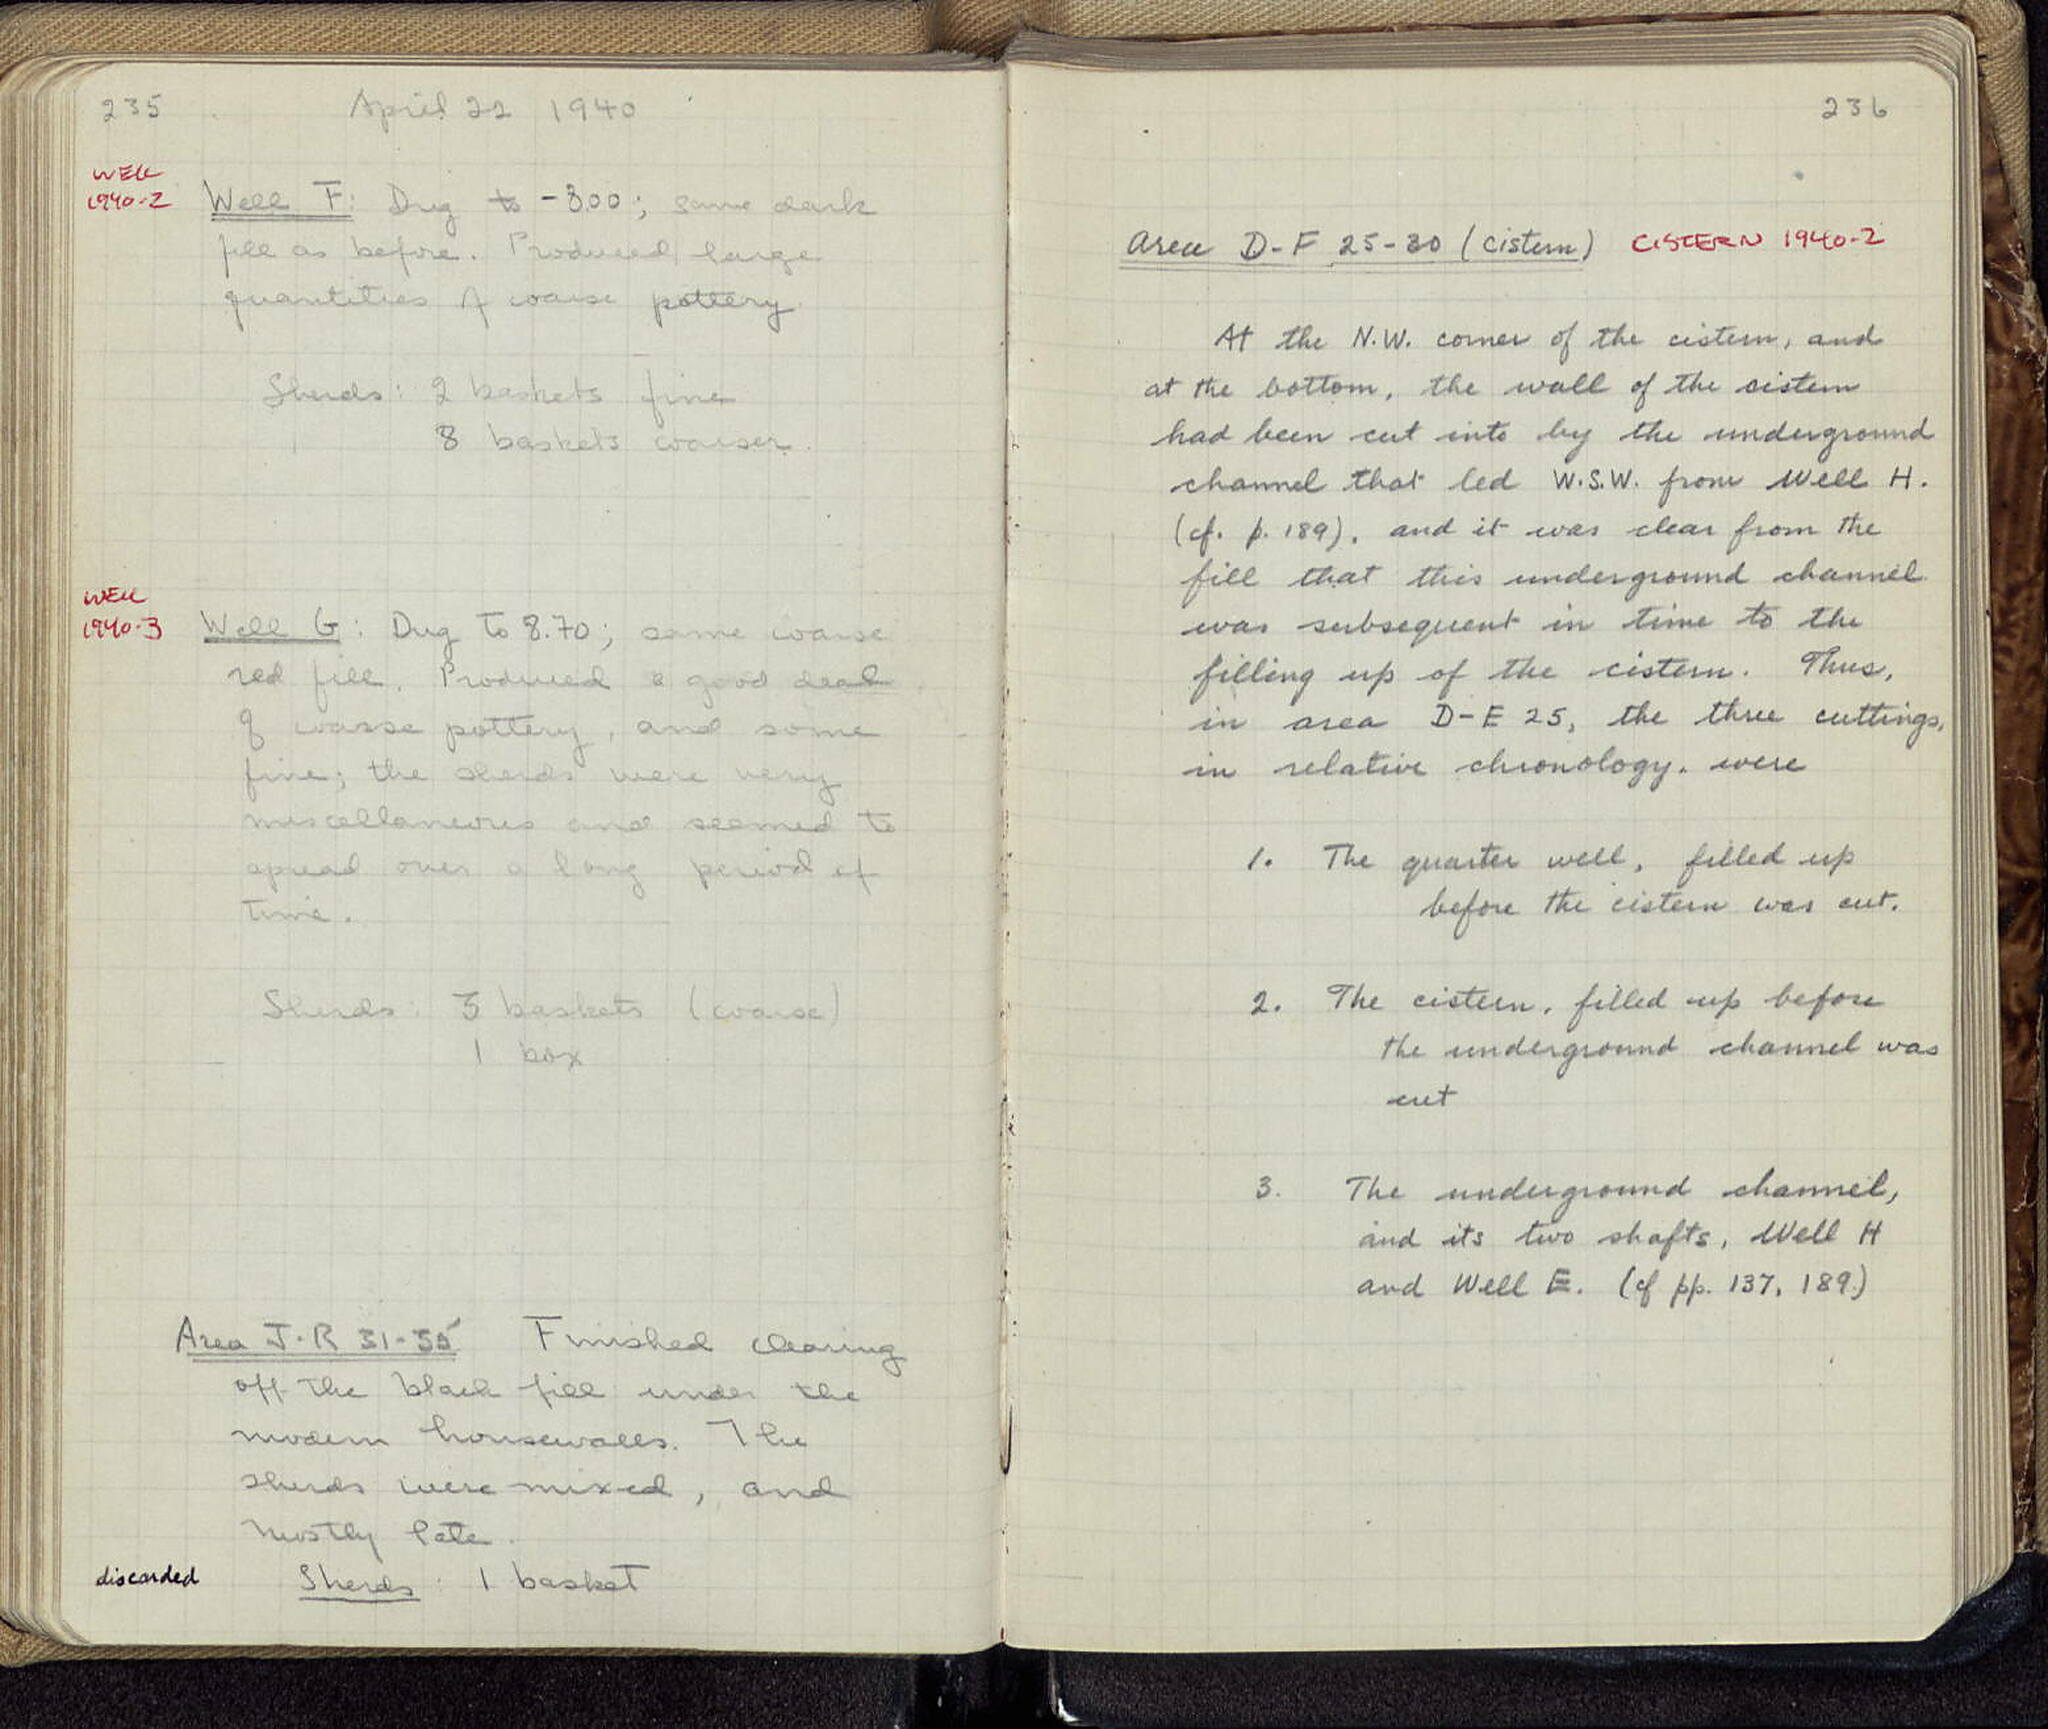 235 April 22 1940
WELL
1940-2
Well F: Dug to -8.00; same dark
fill as before. Produced large
quantities of coarse pottery.
Sherds: 2 baskets fine
8 baskets coarser.
WELL
1940-3
Well G: Dug to 8.70; same coarse
red fill. Produced a good deal
of coarse pottery, and some
fine; the sherds were very
miscellaneous and seemed to
spread over a long period of
time.
Sherds: 3 baskets (coarse)
1 box
Area J-R 31-35 Finished clearing
off the black fill under the
modern housewalls. The
sherds were mixed, and
mostly late.
discarded Sherds: 1 basket
236
Area D-F 25-30 (cistern) CISTERN 1940-2
At the N.W. corner of the cistern, and
at the bottom, the wall of the cistern
had been cut into by the underground
channel that led W.S.W. from Well H.
(cf. p. 189), and it was clear from the
fill that this underground channel
was subsequent in time to the
filling up of the cistern. Thus,
in area D-E 25, the three cuttings,
in relative chronology, were
1. The quarter well, filled up
before the cistern was cut.
2. The cistern, filled up before
the underground channel was
cut
3. The underground channel,
and its two shafts, Well H
and Well E. (cf pp. 137, 189.)